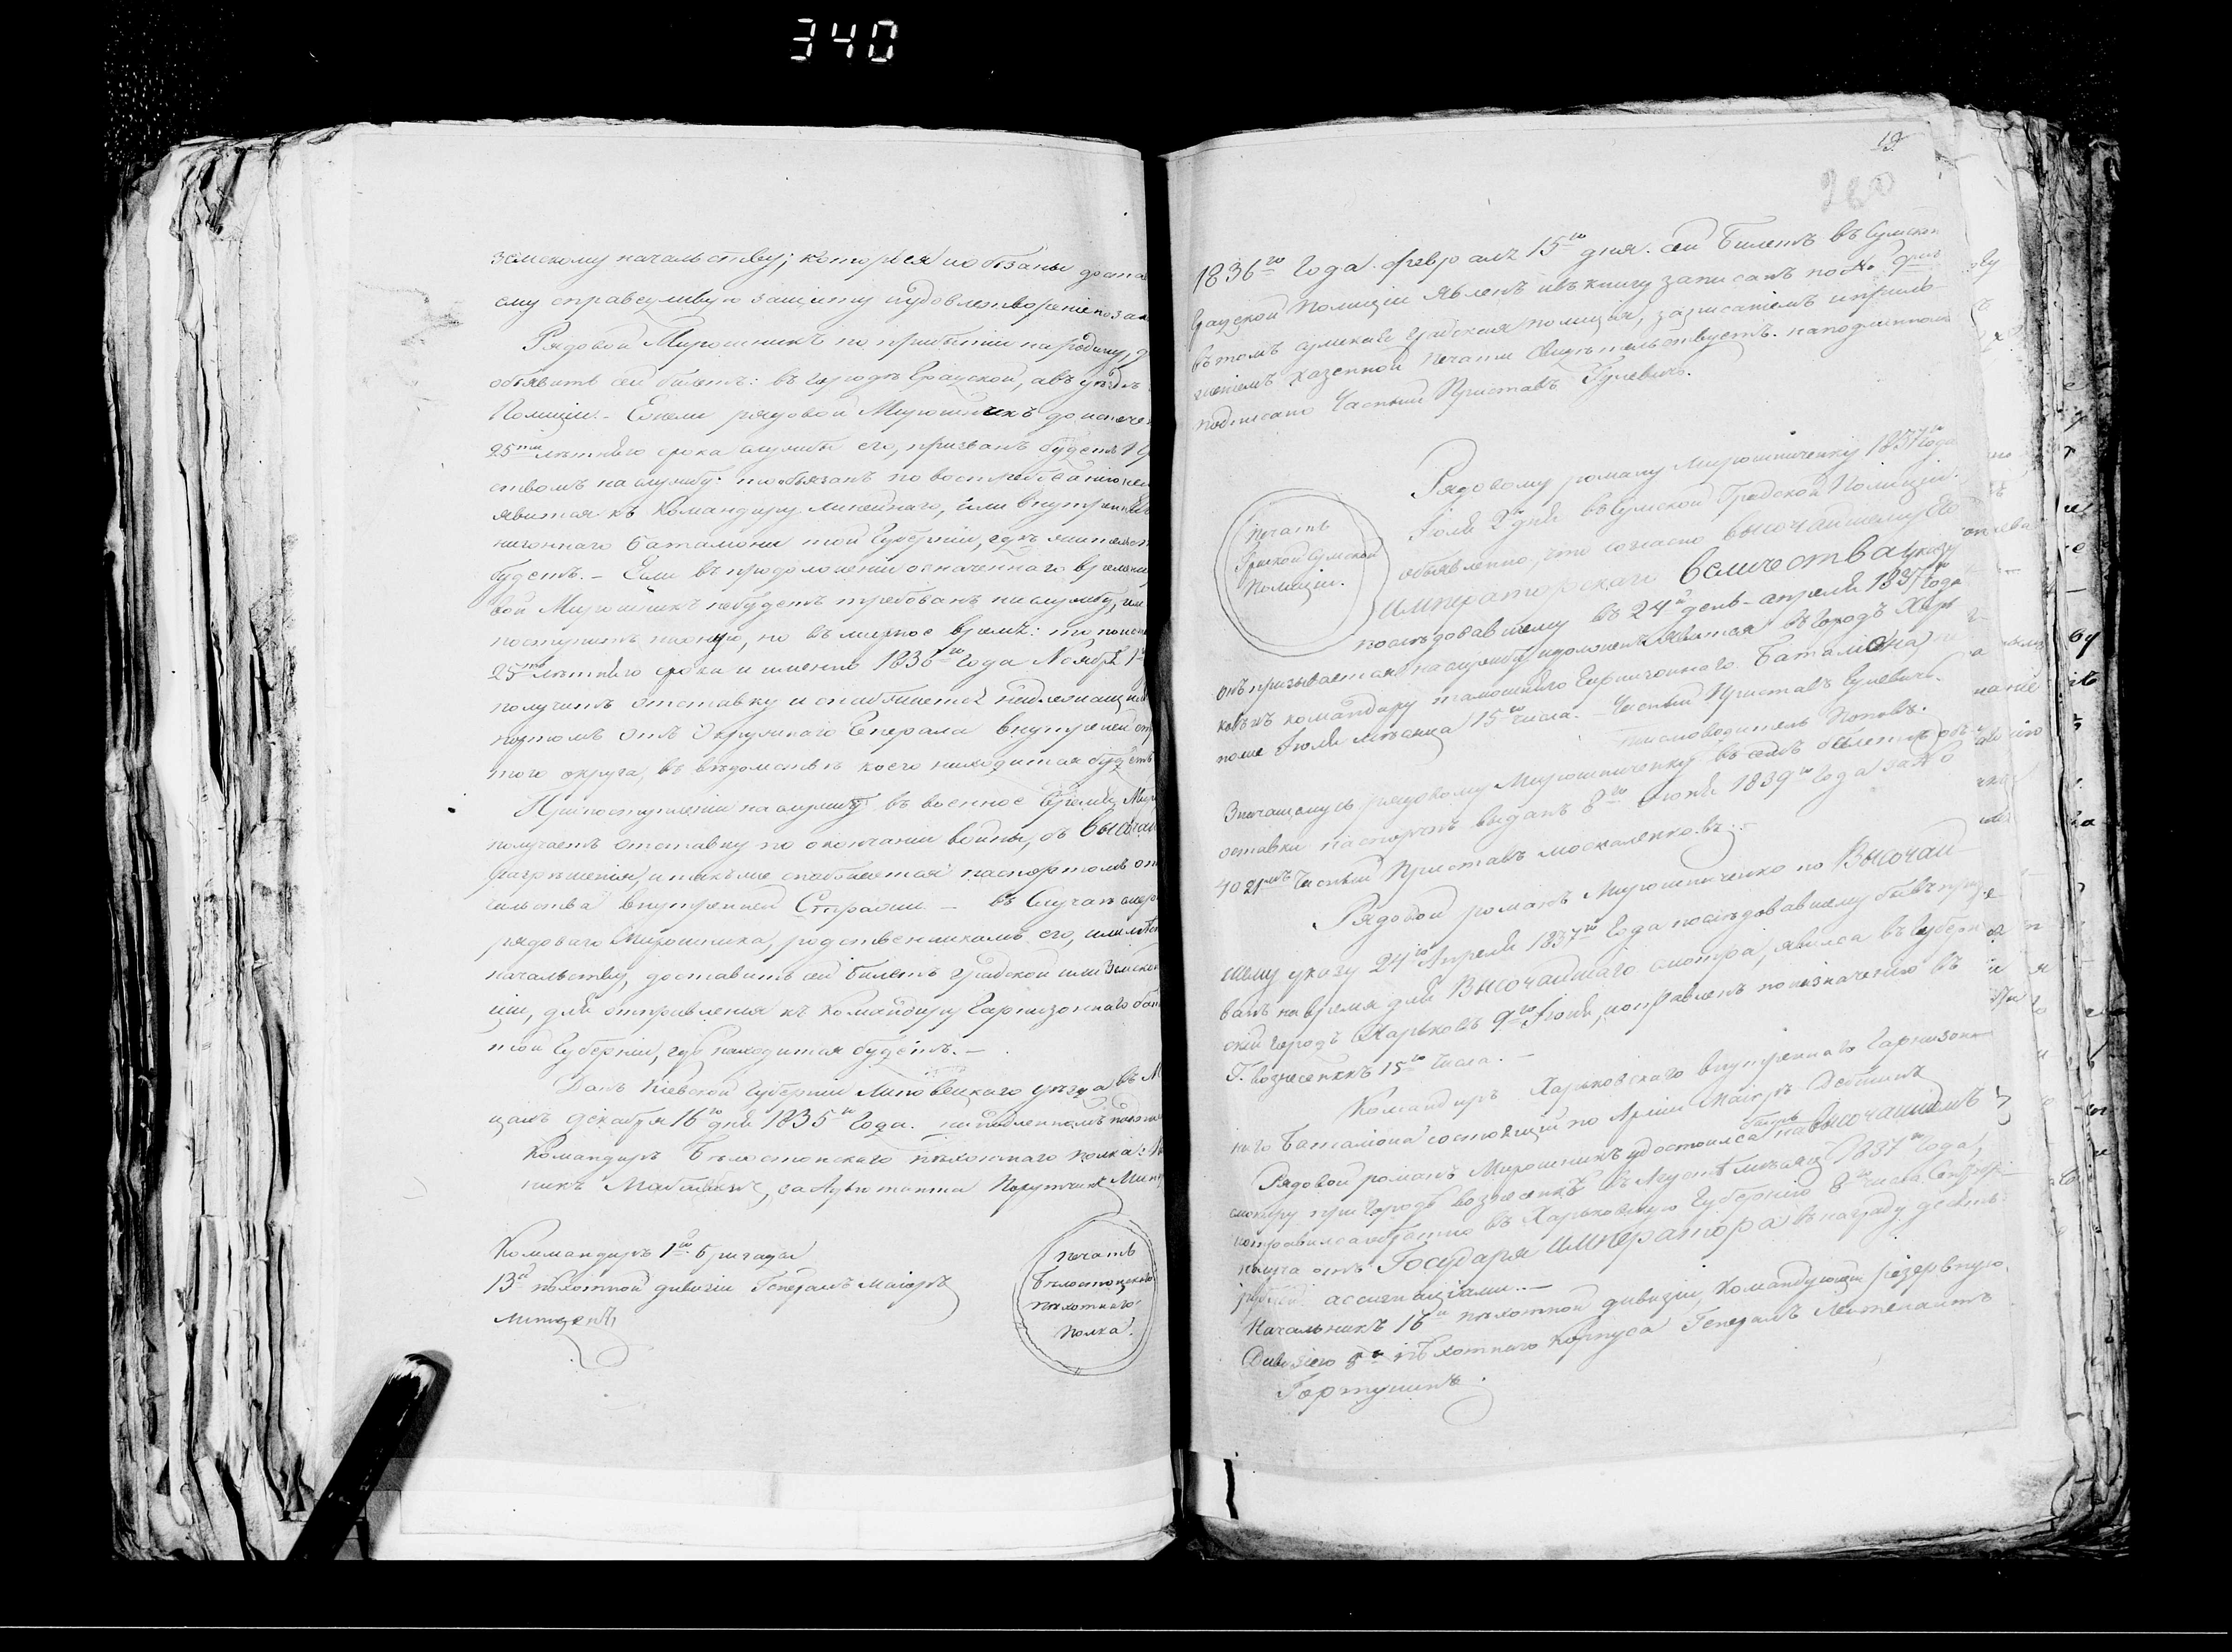 340
земскому начальству; которыя и обязаны доста
ему справедливую защиту и удовлетвореніе по зак
Рядовой Мирошникъ по прибытіи на родину, д
объявить сей билетъ: въ городѣ Градской, а въ уѣздѣ
Полиціи. – Ежели рядовой Мирошникъ до истече
25ти лѣтняго срока службы его, призванъ будетъ
ствомъ на службу: то обязанъ по востребованію
явится къ Командиру линейнаго, или внутренняго
низоннаго баталіона той Губерніи, гдѣ жительст
будетъ. – Если въ продолженіи означеннаго времени
вой Мирошникъ небудетъ требованъ на службу, или
поступитъ на оную, но въ мирное время: то по
25ти лѣтняго срока и именно 1836го Года Ноября 1
получитъ отставку и снабжается надлежащимъ
портомъ отъ Окружнаго Генерала внутренней
того округа, въ вѣдомствѣ коего находится будетъ
При поступленіи на службу въ военное время, Мир
получаетъ отставку по окончаніи войны, съ Высочай
разрѣшенія, и также снабжается паспортомъ от
чальства внутренней Стражи. – въ Случаѣ смер
рядоваго Мирошника, родственникамъ его, или
начальству, доставить сей билетъ Градской или Земской
ціи, для отправленія къ Командиру Гарнизоннаго бат
той Губерніи, гдѣ находится будетъ. –
Данъ Кіевской Губерніи Липовецкаго уѣзда въ М
цахъ декабря 16го дня 1835го Года. на подлинномъ
Командиръ Бѣлостокскаго пѣхотнаго полка:
никъ за Адъютанта Порутчикъ
Коммандиръ 1й бригады
13й пѣхотной дивизіи Генералъ Маіоръ
печать
Бѣлостокскаго
пѣхотнаго
полка.
19
260
1836го Года февраля 15го дня. сей билетъ въ Сумской
Градской Полиціи явленъ и въ книгу записанъ по №
въ томъ сумская градская полиція, записаніемъ и прило
женіемъ казенной печати свидѣтельствуетъ. на подлинномъ
подписалъ Частный Приставъ Гулевичъ.
Рядовому роману Мирошниченку 1837го года
Іюля 2 дня въ Сумской Градской Полиціи
объявленно, что согласно высочайшему Его
Императорскаго величества указу
послѣдовавшему въ 24й день апреля 1837го года
печать
Градской Сумской
Полиціи.
онъ призывается на службу и долженъ явится въ городъ Харь
ковъ къ командиру тамошняго Гарнизоннаго Баталіона не
позже Іюля мѣсяца 15го числа. – Частный Приставъ Гулевичъ.
Писмоводитель Поповъ.
Значащемуся рядовому Мирошниченку въ семъ билетѣ объ
отставки паспортъ выданъ 8го Іюня 1839го Года за №
4021мъ Частный Приставъ Москаленковъ. –
Рядовой романъ Мирошниченко по Высочай
шему указу 24го Апреля 1837го Года послѣдовавшему бывъ приз
ванъ на время для Высочайшаго смотра, явился въ Губерн
скій городъ Харьковъ 9го Іюля, и отправленъ по назначенію въ
Г. вознесенкъ 15го числа. –
Командиръ Харьковскаго внутренняго Гарнизон
наго Баталіона состоящій по Арміи Маіоръ
Рядовой романъ Мирошникъ удостоился быть на высочайшемъ
смотру при Городѣ вознесенкѣ въ Августѣ мѣсяцѣ 1837го года,
и отправился обратно въ Харьковскую Губернію 8го числа Сентября
получа отъ Государя Императора въ награду девять
рублей ассигнаціями. –
Начальникъ 16й пѣхотной дивизіи, Командующій резервною
Дивизіею 5го пѣхотнаго корпуса Генералъ Лейтенантъ